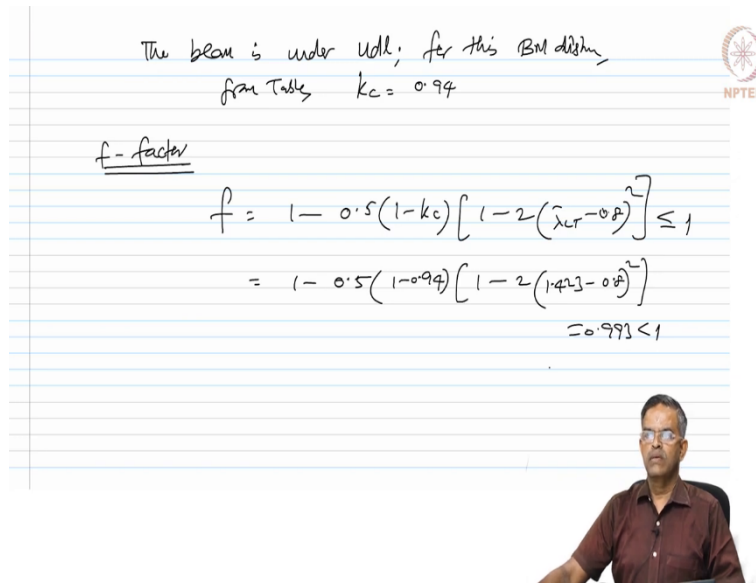 The beam is under udl; for this BM distbn,
from Tables kc = 0.94
NPTE
f-factor
f = 1 - 0.5(1-kc)[1-2(λ̄LT-0.8)²] ≤ 1
= 1- 0.5(1-0.94)[1-2(1.423-0.8)²]
=0.993<1